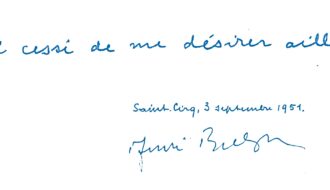 i cessé de me désirer aill
Saint-Cirq, 3 septembre 1951.
André Breton